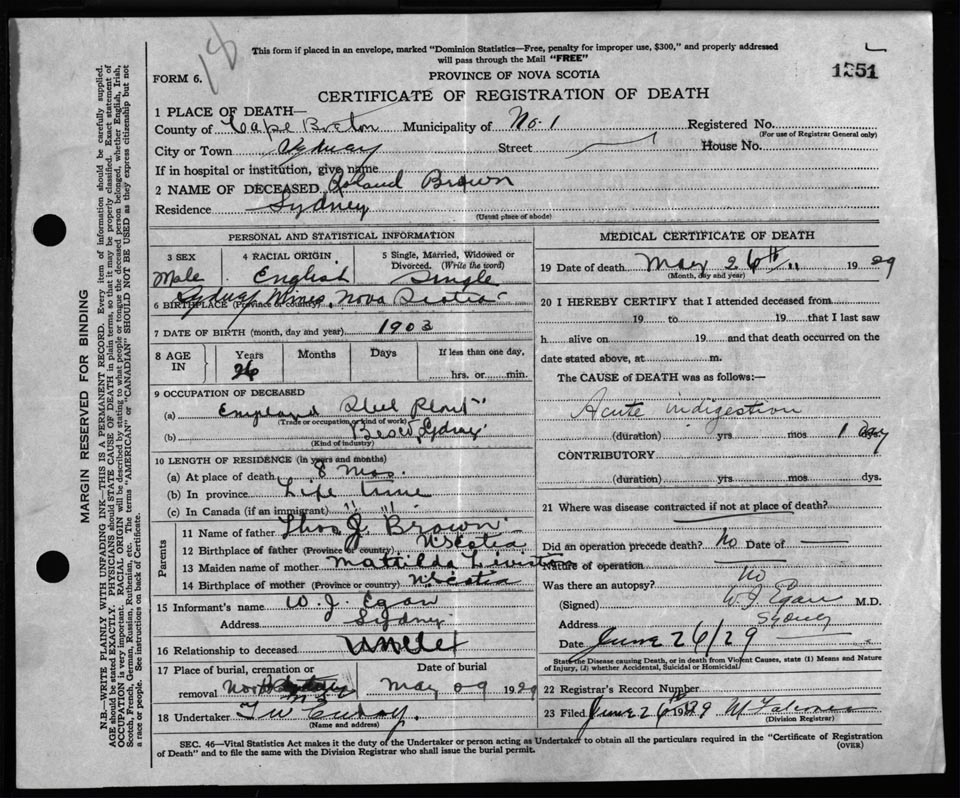 18
This form if placed in an envelope, marked "Dominion Statistics—Free, penalty for improper use, $300," and properly addressed
will pass through the Mail "FREE"
1251
FORM 6.
PROVINCE OF NOVA SCOTIA
CERTIFICATE OF REGISTRATION OF DEATH
1 PLACE OF DEATH—
County of Cape Breton Municipality of No. 1 Registered No.
(For use of Registrar General only)
City or Town Sydney Street House No.
If in hospital or institution, give name
2 NAME OF DECEASED Roland Brown
Residence Sydney
(Usual place of abode)
PERSONAL AND STATISTICAL INFORMATION
3 SEX 4 RACIAL ORIGIN 5 Single, Married, Widowed or
Divorced. (Write the word)
Male English Single
6 BIRTHPLACE (Province or country) Sydney Mines, Nova Scotia
7 DATE OF BIRTH (month, day and year) 1903
8 AGE IN Years Months Days If less than one day,
26 hrs. or min.
9 OCCUPATION OF DECEASED
(a) Steel Plant
(Trade or occupation or kind of work)
(b) Besco, Sydney
(Kind of industry)
10 LENGTH OF RESIDENCE (in years and months)
(a) At place of death 8 Mos.
(b) In province Life time
(c) In Canada (if an immigrant) " "
Parents
11 Name of father Thos J. Brown
12 Birthplace of father (Province or country) N Scotia
13 Maiden name of mother Mattilda
14 Birthplace of mother (Province or country) N Scotia
15 Informant's name W. J. Egan
Address Sydney
16 Relationship to deceased
17 Place of burial, cremation or Date of burial
removal North Sydney May 1929
18 Undertaker
(Name and address)
MEDICAL CERTIFICATE OF DEATH
19 Date of death May 26th 1929
(Month, day and year)
20 I HEREBY CERTIFY that I attended deceased from
19 to 19 that I last saw
h alive on 19 and that death occurred on the
date stated above, at m.
The CAUSE of DEATH was as follows:—
Acute indigestion
(duration) yrs mos 1 day dys.
CONTRIBUTORY
(duration) yrs mos dys.
21 Where was disease contracted if not at place of death?
Did an operation precede death? No Date of
Nature of operation
Was there an autopsy? No
(Signed) W J Egan M.D.
Address Sydney
Date June 26/29
State the Disease causing Death, or in death from Violent Causes, state (1) Means and Nature
of Injury, (2) whether Accidental, Suicidal or Homicidal.
22 Registrar's Record Number
23 Filed June 26th 1929
(Division Registrar)
SEC. 46—Vital Statistics Act makes it the duty of the Undertaker or person acting as Undertaker to obtain all the particulars required in the "Certificate of Registration
of Death" and to file the same with the Division Registrar who shall issue the burial permit.
(OVER)
MARGIN RESERVED FOR BINDING
N.B.—WRITE PLAINLY WITH UNFADING INK—THIS IS A PERMANENT RECORD. Every item of information should be carefully supplied.
AGE should be stated EXACTLY. PHYSICIANS should STATE CAUSE OF DEATH in plain terms, so that it may be properly classified. Exact statement of
OCCUPATION is very important. RACIAL ORIGIN will be described by stating to what people or tongue the deceased person belonged, whether English, Irish,
Scotch, French, German, Russian, Ruthenian, etc. The terms "AMERICAN" or "CANADIAN" SHOULD NOT BE USED as they express citizenship but not
a race or people. See instructions on back of Certificate.